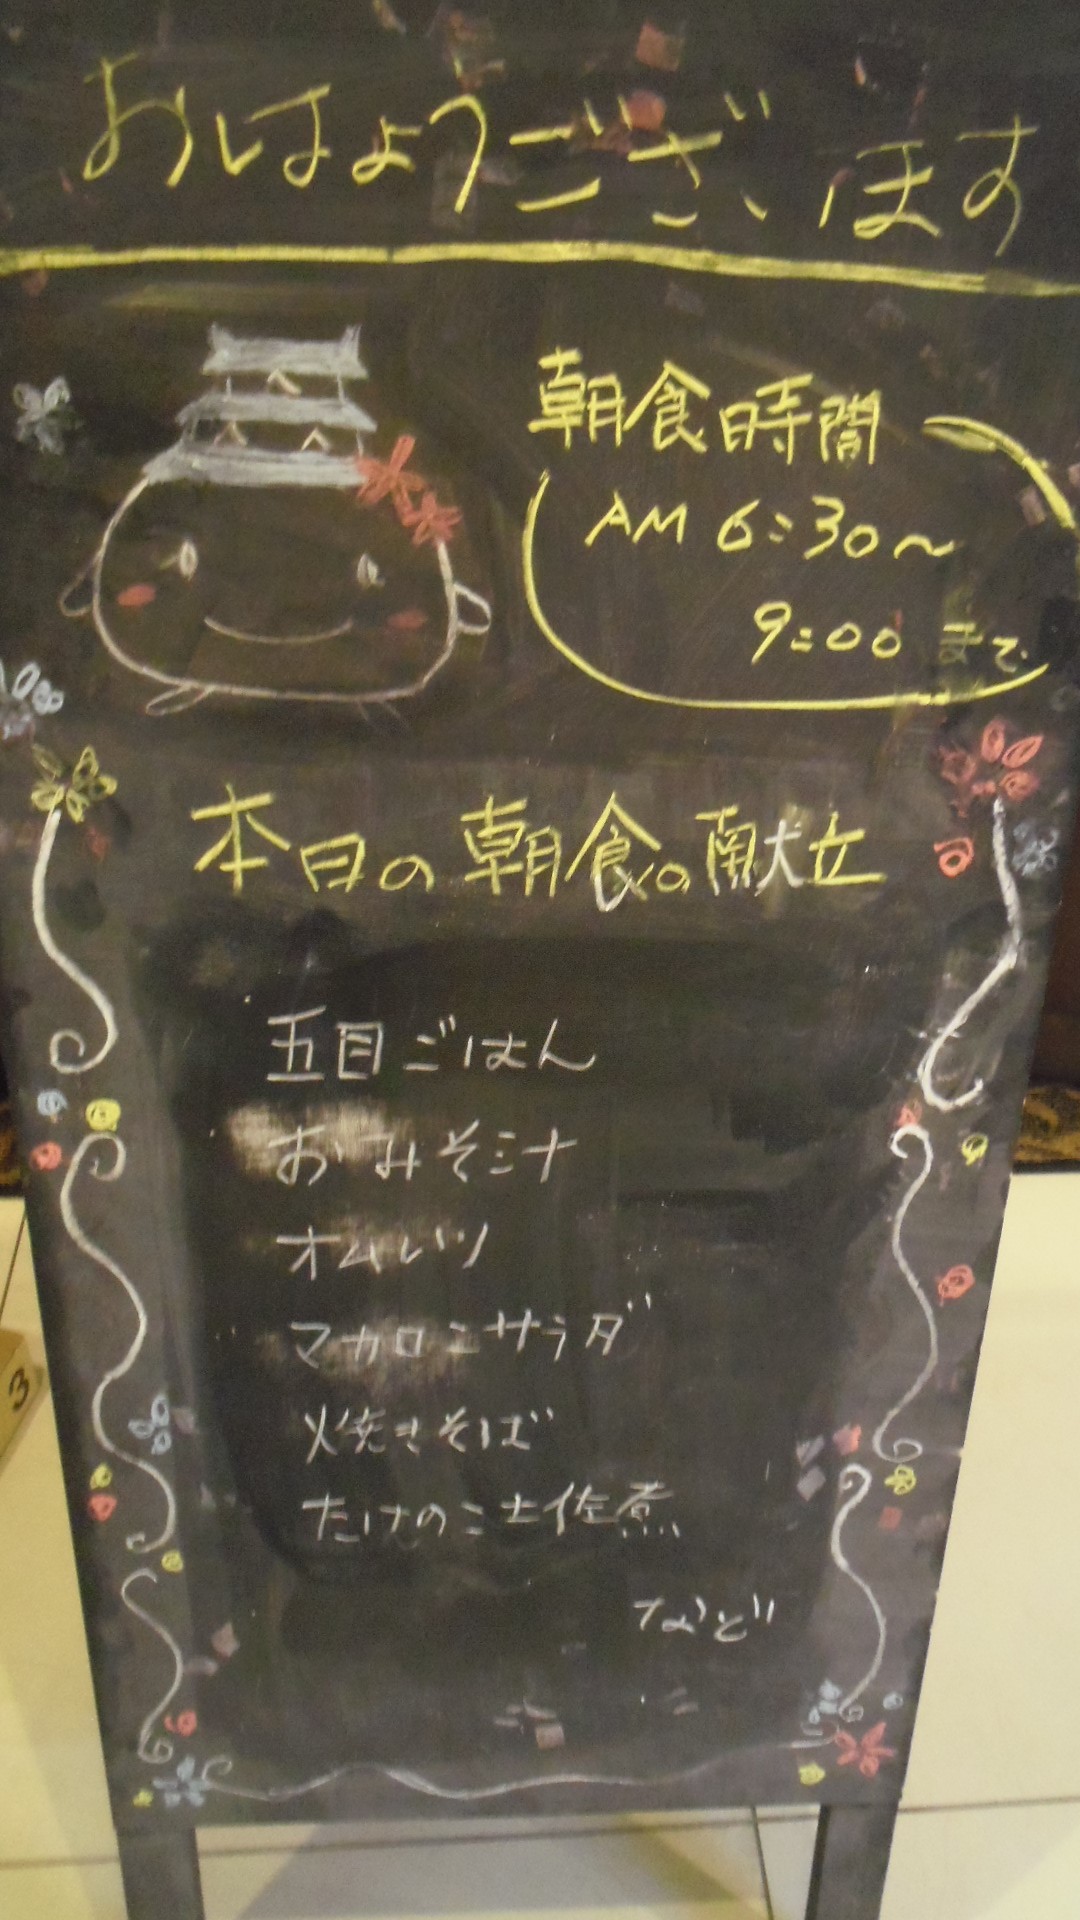 おはようございます
朝食時間
AM 6:30～
9:00 まで
本日の朝食の献立
五目ごはん
おみそ汁
オムレツ
マカロニサラダ
焼きそば
たけのこ土佐煮
など
3